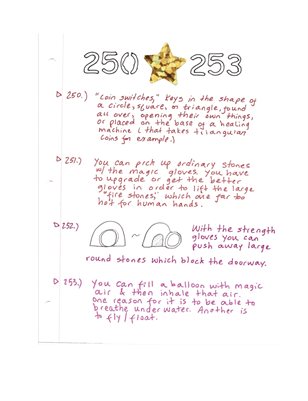 250 253
▷ 250.) "Coin switches," Keys in the shape of
a circle, square, or triangle, found
all over, opening their own things,
or placed on the base of a healing
machine (that takes triangular
coins for example.)
▷ 251.) You can pick up ordinary stones
w/the magic gloves. You have
to upgrade or get the better
gloves in order to lift the large
"fire stones," which are far too
hot for human hands.
▷ 252.) ~ With the strength
gloves you can
push away large
round stones which block the doorway.
▷ 253.) You can fill a balloon with magic
air & then inhale that air.
one reason for it is to be able to
breathe underwater. Another is
to fly/float.